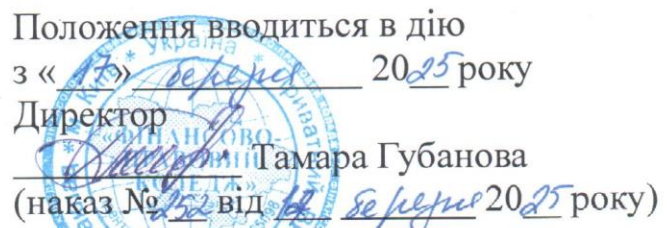 Положення вводиться в дію
з «17» березня 2025 року
Директор
Тамара Губанова
(наказ № 252 від 12 березня 2025 року)
* Київ * Україна *
«ФІНАНСОВО-